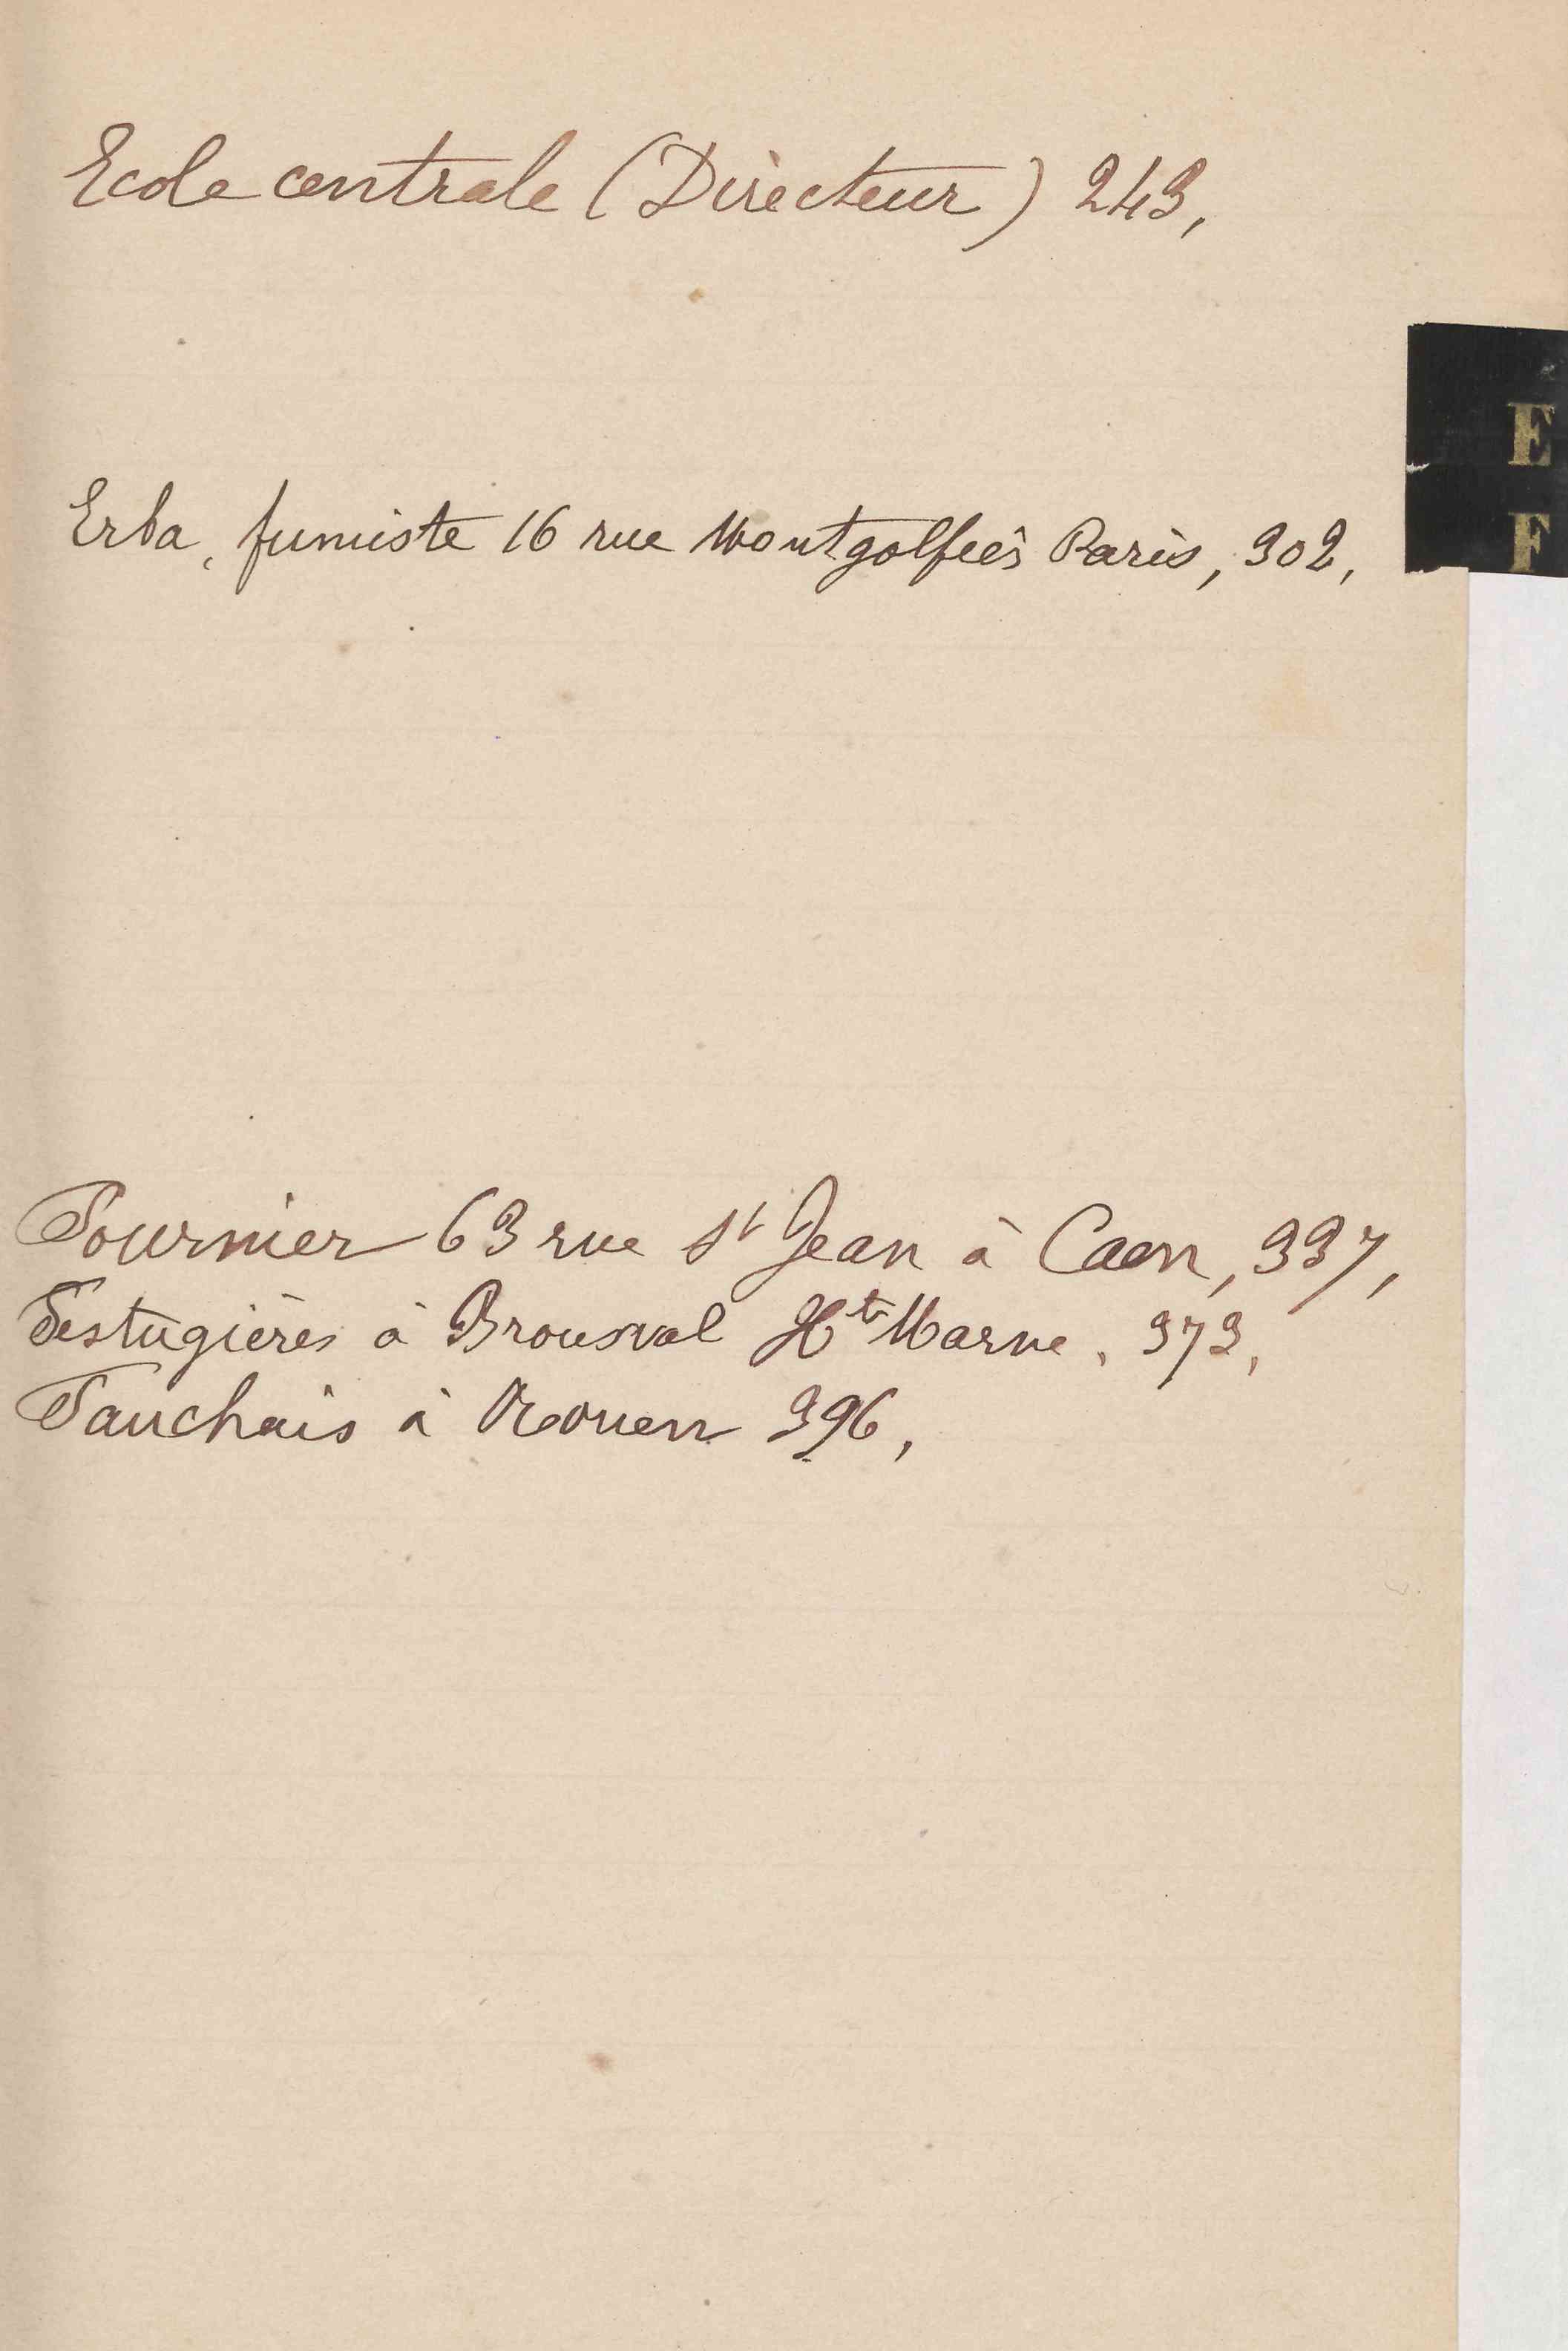 Ecole centrale (Directeur) 243,
E
F
Erba, fumiste 16 rue Montgolfier Paris, 302,
Fournier 63 rue St Jean à Caen, 337,
Festugières à Brousval Hte Marne, 373,
Fauchais à Rouen 396,